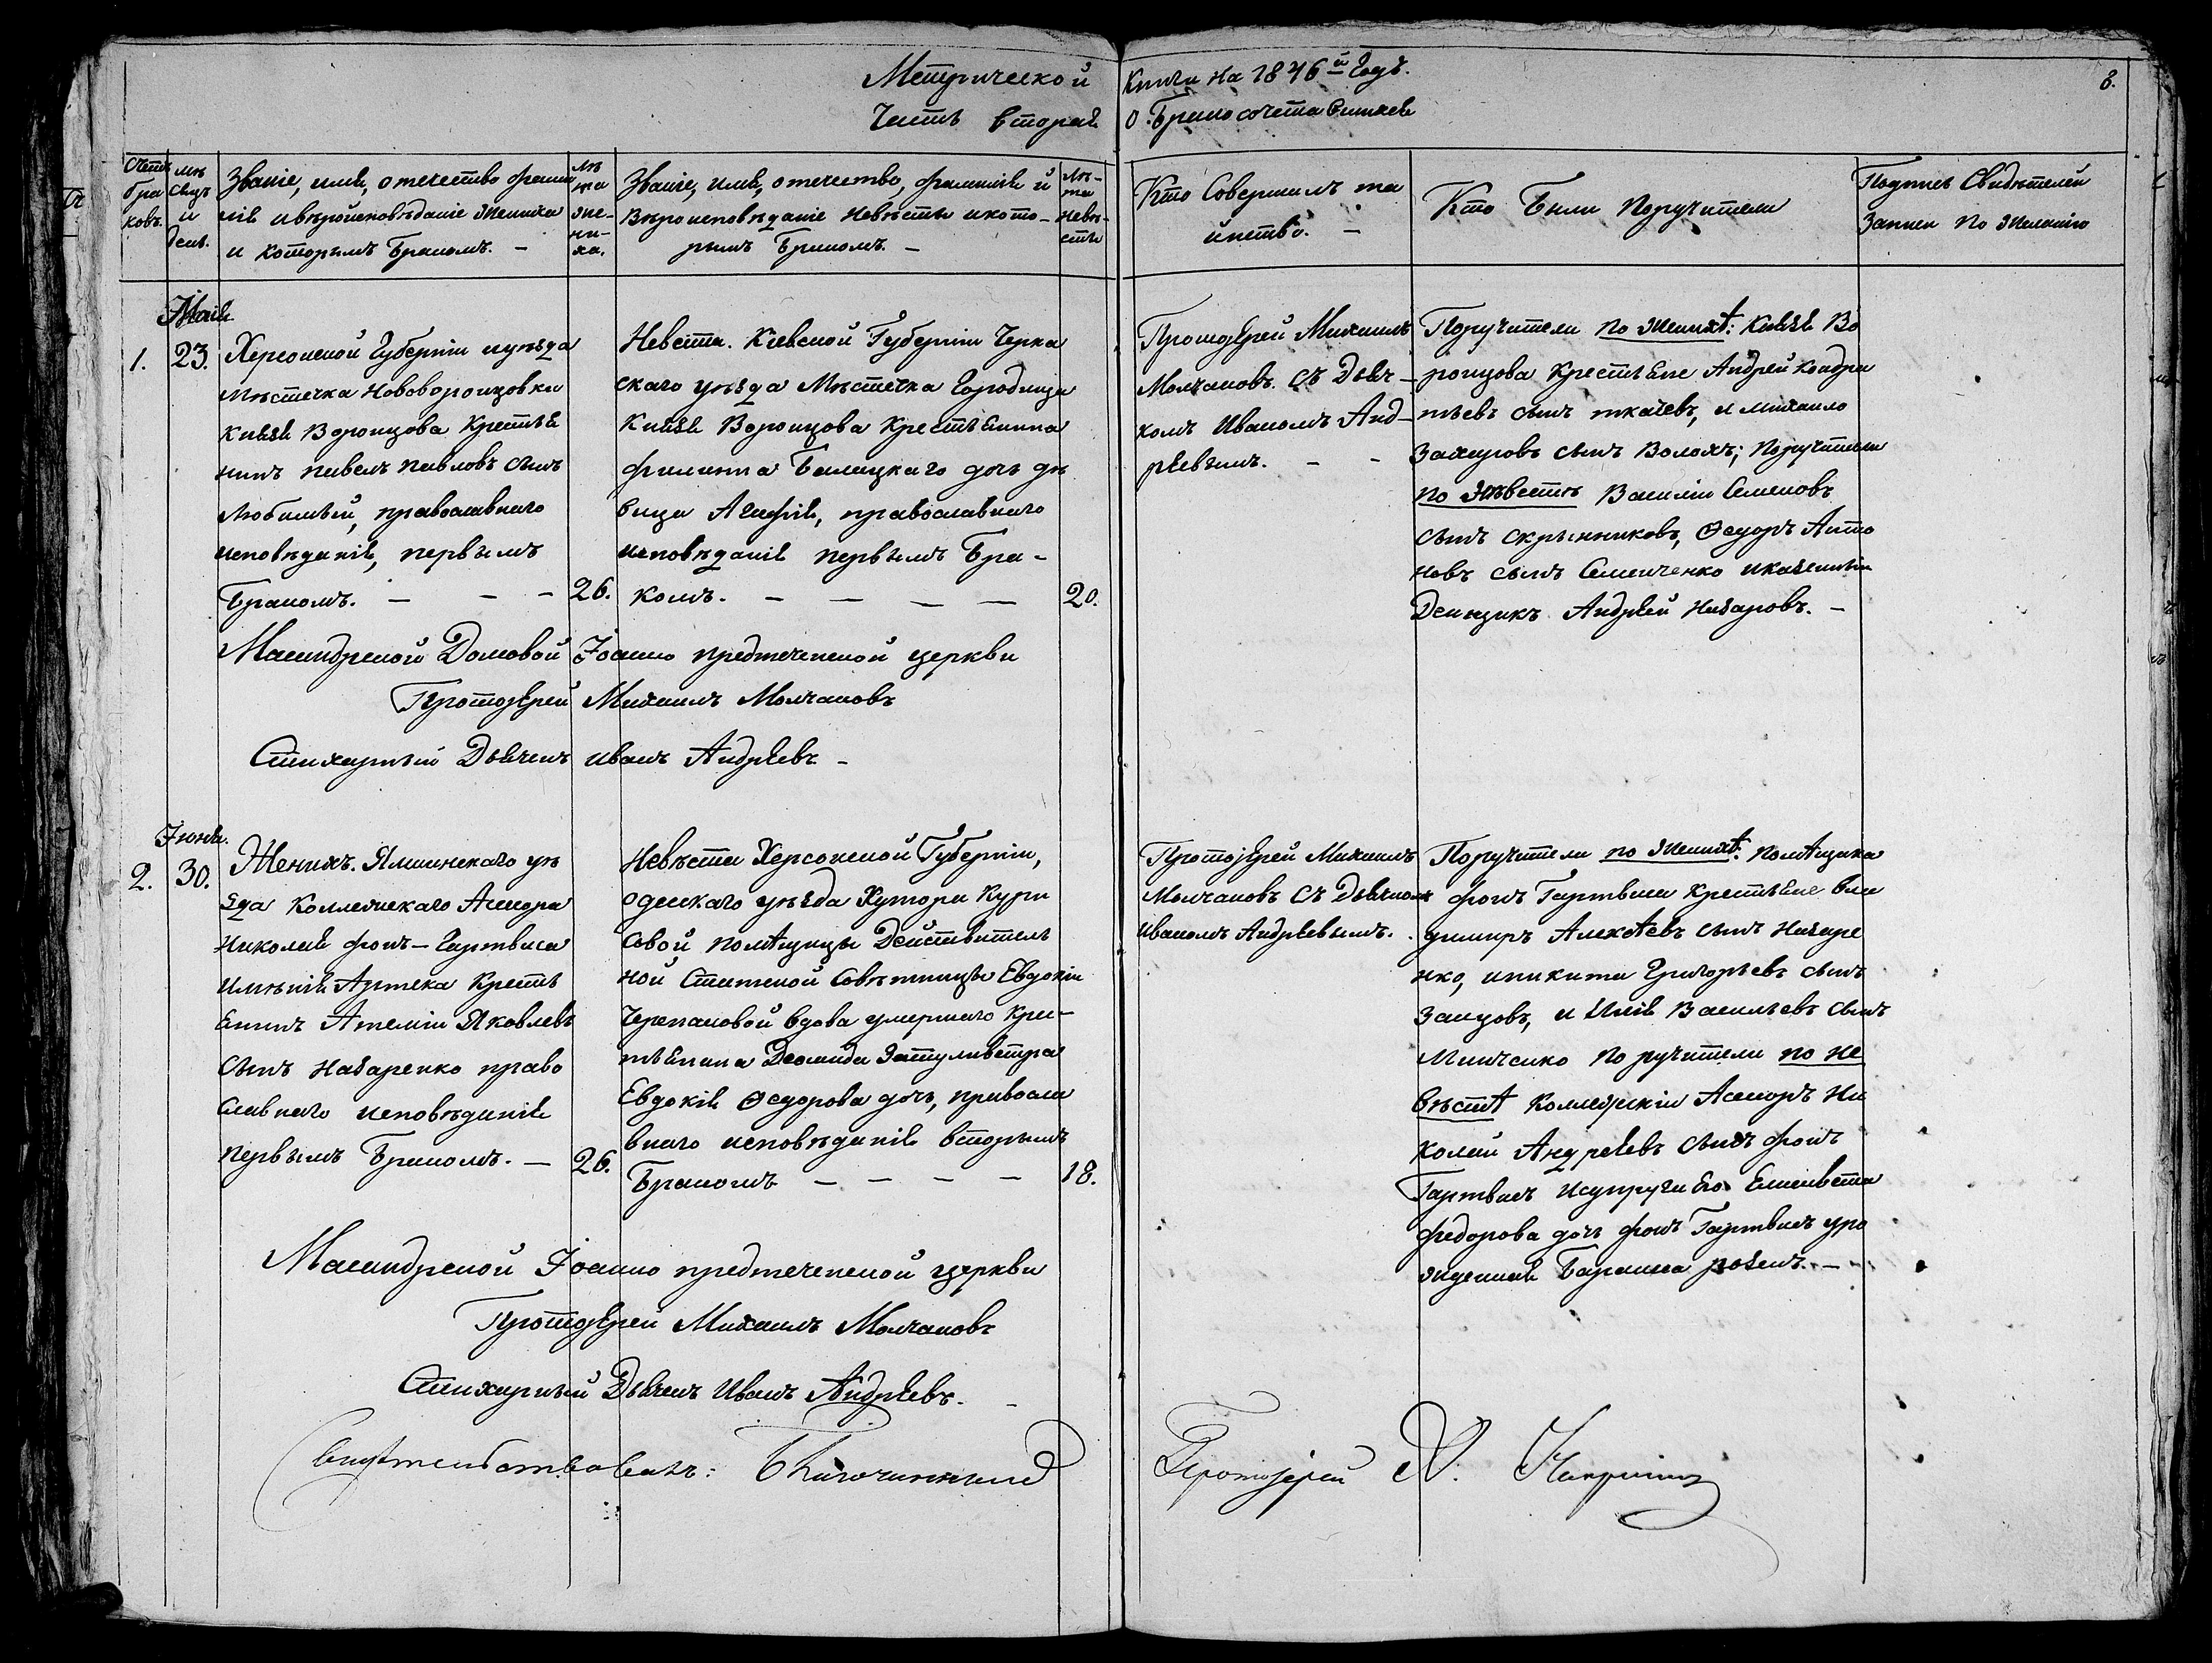 Метрической Книги на 1846й Годъ.
8.
Часть вторая О Бракосочетавшихся
Счетъ браковъ.
Мѣсяцъ и день.
Званіе, имя, отечество, фамилія и вѣроисповѣданіе жениха и которымъ бракомъ. —
Лѣта жениха.
Званіе, имя, отечество, фамилія и
Вѣроисповѣданіе невѣсты и кото-
рымъ Бракомъ. —
Лѣ-
та
невѣ-
сты
Кто Совершалъ та
инство. —
Кто Были Поручители
Подпись Свидѣтелей
Записи по желанію
Маія
1. 23.
Херсонской Губерніи и уѣзда
Мѣстечка Нововоронцовки
Князя Воронцова Крестья
нинъ Павелъ Павловъ сынъ
Любимый, православнаго
исповѣданія, первымъ
Бракомъ. — — —
26.
Невѣста. Кіевской Губерніи Черка
скаго уѣзда Мѣстечка Городища
Князя Воронцова Крестьянина
Филиппа Билецкаго дочь дѣ
вица Агафія, православнаго
исповѣданія первымъ Бра-
комъ. — — — —
20.
Протоіерей Михаилъ
Молчановъ. Съ Дьяч-
комъ Иваномъ Анд-
рѣевымъ. — —
Поручители по женихѣ: Князя Во
ронцова Крестьяне Андрей Кондра
тьевъ сынъ Ткачевъ, и Михаило
Захаровъ сынъ Волохъ; Поручители
по невѣстѣ Василій Семеновъ
сынъ Скрынниковъ, Ѳедоръ Анто
новъ сынъ Семенченко и казенный
Деньщикъ Андрей Назаровъ. —
Масандрской Домовой Іоанно предтеченской церкви
Протоіерей Михаилъ Молчановъ
Стихарный Дьячекъ Иванъ Андрѣевъ —
Іюня.
2. 30.
Женихъ. Ялтинскаго уѣ
зда Коллежскаго Асесора
Николая фонъ-Гартвиса
имѣнія Артека Крестья
Енинъ Артемій Яковлевъ
Сынъ Назаренко право
славнаго исповѣданія
первымъ Бракомъ. —
26.
Невѣста Херсонской Губерніи,
Одесскаго уѣзда Хутора Кури
совой, помѣщицы Действитель
ной Статской Совѣтницы Евдокіи
Черепановой вдова умершаго Крес-
тьянина Деомида
Евдокія Ѳедорова дочь, правосла
внаго исповѣданія вторымъ
Бракомъ — — — —
18.
Протоіерей Михаилъ
Молчановъ Съ Дьячкомъ
Иваномъ Андрѣевымъ.
Поручители по женихѣ: помѣщика
фонъ Гартвиса Крестьяне Вла
димиръ Алексѣевъ сынъ Назаре
нко, и Никита Григорьевъ сынъ
Зайцовъ, и Илія Васильевъ сынъ
Минченко Поручители по не
вѣстѣ Коллежскій Асесоръ Ни
колай Андреевъ сынъ фонъ
Гартвисъ и супруга Его Елисавета
Федорова дочь фонъ Гартвисъ уро
жденная Барониса розенъ. —
Масандрской Іоанно предтеченской церкви
Протоіерей Михаилъ Молчановъ
Стихарный Дьячекъ Иванъ Андрѣевъ.
Свидѣтельствовалъ: Благочинный Протоіерей